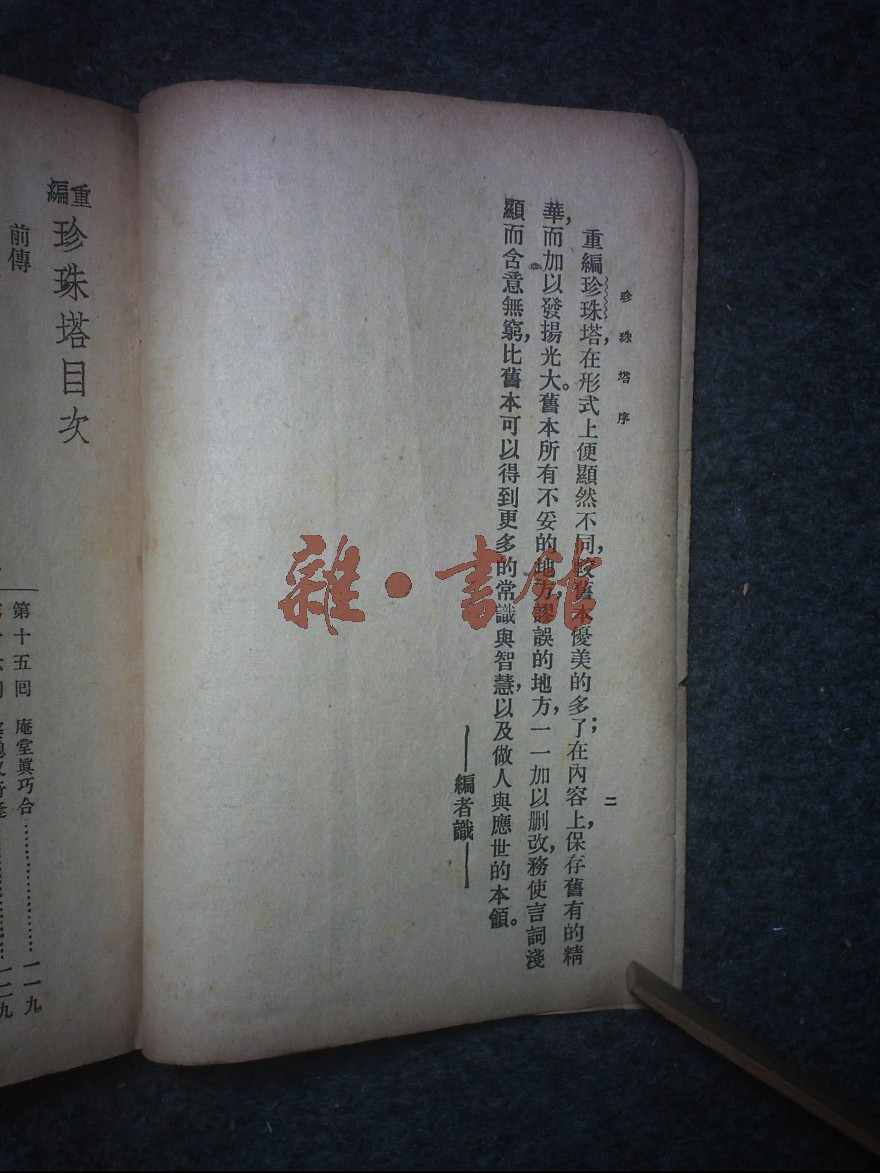 珍珠塔序
二
重編珍珠塔,在形式上便顯然不同,較舊本優美的多了;在內容上,保存舊有的精
華,而加以發揚光大。舊本所有不妥的地方,謬誤的地方,一一加以刪改,務使言詞淺
顯而含意無窮,比舊本可以得到更多的常識與智慧,以及做人與應世的本領。
——編者識——
重編珍珠塔目次
前傳
第十五回 庵堂眞巧合⋯⋯⋯⋯一一九
一二九
雜·書館